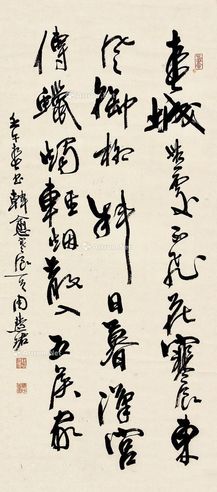 春城無處不飛花寒食東
風御柳斜日暮漢宮
傳蠟燭輕烟散入五侯家
壬午 韓 寒食 周慧珺